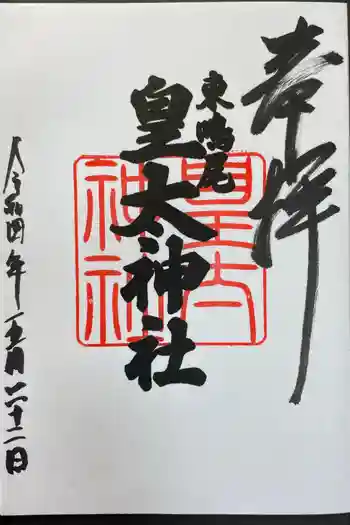 奉拝
東鳴尾
皇太神社
皇大
神社
令和四年五月二十二日